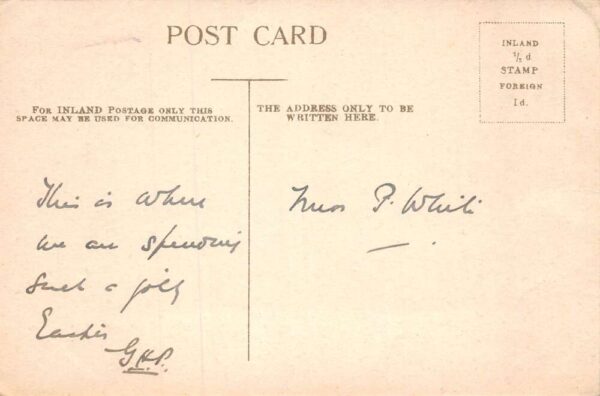 POST CARD
INLAND
½ d.
STAMP
FOREIGN
1d.
FOR INLAND POSTAGE ONLY THIS
SPACE MAY BE USED FOR COMMUNICATION.
THE ADDRESS ONLY TO BE
WRITTEN HERE.
This is where
we are spending
such a jolly
Easter
G.H.P.
Mrs P. White